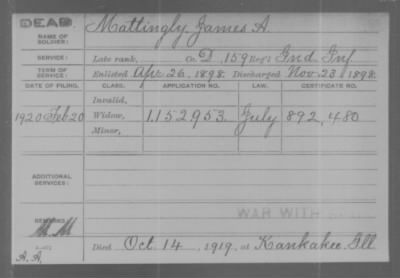 DEAD
NAME OF SOLDIER: Mattingly, James A.
SERVICE: Late rank, Co. D, 159 Reg't Ind. Inf.
TERM OF SERVICE: Enlisted Apr. 26, 1898. Discharged Nov. 23, 1898.
DATE OF FILING. CLASS. APPLICATION NO. LAW. CERTIFICATE NO.
Invalid,
1920 Feb 20 Widow, 1.152.953. July 892,480
Minor,
ADDITIONAL SERVICES:
WAR WITH
REMARKS:
Died Oct. 14, 1919, at Kankakee, Ill